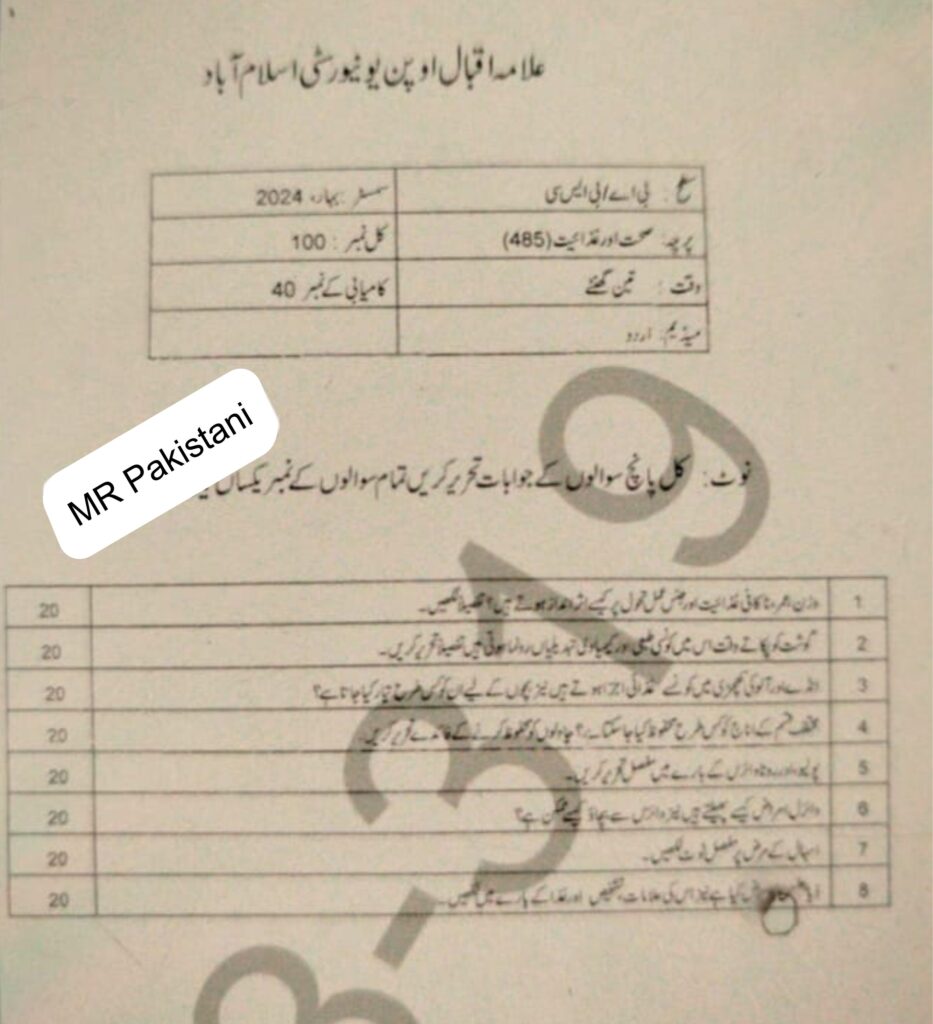 علامہ اقبال اوپن یونیورسٹی اسلام آباد
سطح : بی اے/بی ایس سی سمسٹر : بہار، 2024
پرچہ: صحت اور غذائیت (485) کل نمبر : 100
وقت : تین گھنٹے کامیابی کے نمبر 40
میڈیم: اردو
MR Pakistani
نوٹ: کل پانچ سوالوں کے جوابات تحریر کریں تمام سوالوں کے نمبر یکساں
1 وزن، عمر، ناکافی غذائیت اور جنس عمل تحول پر کیسے اثر انداز ہوتے ہیں؟ تفصیلاً لکھیں۔ 20
2 گوشت کو پکاتے وقت اس میں کونسی طبعی اور کیمیاوی تبدیلیاں رونما ہوتی ہیں تفصیلاً تحریر کریں۔ 20
3 انڈے اور آلو کی کھچڑی میں کونسے غذائی اجزا ہوتے ہیں نیز بچوں کے لیے ان کو کس طرح تیار کیا جاتا ہے؟ 20
4 مختلف قسم کے اناج کو کس طرح محفوظ کیا جا سکتا ہے؟ چاولوں کو محفوظ کرنے کے فائدے تحریر کریں۔ 20
5 پولیو اور روٹا وائرس کے بارے میں مفصل تحریر کریں۔ 20
6 وائرل امراض کیسے پھیلتے ہیں نیز وائرس سے بچاؤ کیسے ممکن ہے؟ 20
7 اسہال کے مرض پر مفصل نوٹ لکھیں۔ 20
8 کیا ہے نیز اس کی علامات، تشخیص اور غذا کے بارے میں لکھیں۔ 20
8-319